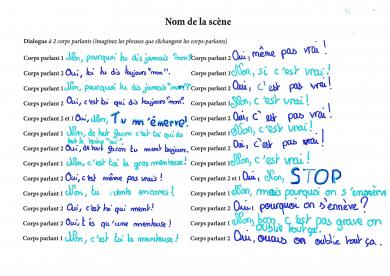 Nom de la scène
Dialogue à 2 corps parlants (imaginez les phrases que s'échangent les corps-parlants)
Corps parlant 1 Non, pourquoi tu dis jamais "non"?
Corps parlant 2 Oui, toi tu dis toujours "non".
Corps parlant 1 Non, tu dis jamais "non"!
Corps parlant 2 Oui, c'est toi qui dis toujours "non".
Corps parlant 2 et 1 Oui, Non, Tu m'énerve!
Corps parlant 1 Non, de tout façon c'est toi qui dis tout le temps "oui".
Corps parlant 2 Oui, de tout façon tu ment toujours.
Corps parlant 1 Non, c'est toi la gros menteuse!
Corps parlant 2 Oui, c'est même pas vrais!
Corps parlant 1 Non, tu ments encores!
Corps parlant 2 Oui, c'est toi qui ment!
Corps parlant 2 Oui, t'es qu'une menteuse!
Corps parlant 1 Non, c'est toi la menteuse!
Corps parlant 2 Oui, même pas vrai!
Corps parlant 1 Non, si c'est vrai!
Corps parlant 2 Oui, c'est pas vrai!
Corps parlant 1 Non, c'est vrai!
Corps parlant 2 Oui, c'est pas vrai!
Corps parlant 1 Non, c'est vrai!
Corps parlant 2 Oui, c'est pas vrai!
Corps parlant 1 Non, c'est vrai!
Corps parlant 2 et 1 Oui, Non, STOP
Corps parlant 1 Non, mais pourquoi on s'ennèrve
Corps parlant 2 Oui, pourquoi on s'ennève?
Corps parlant 1 Non, bon, c'est pas grave on oublie tout ça.
Corps parlant 2 Oui, ouais on oublie tout ça.